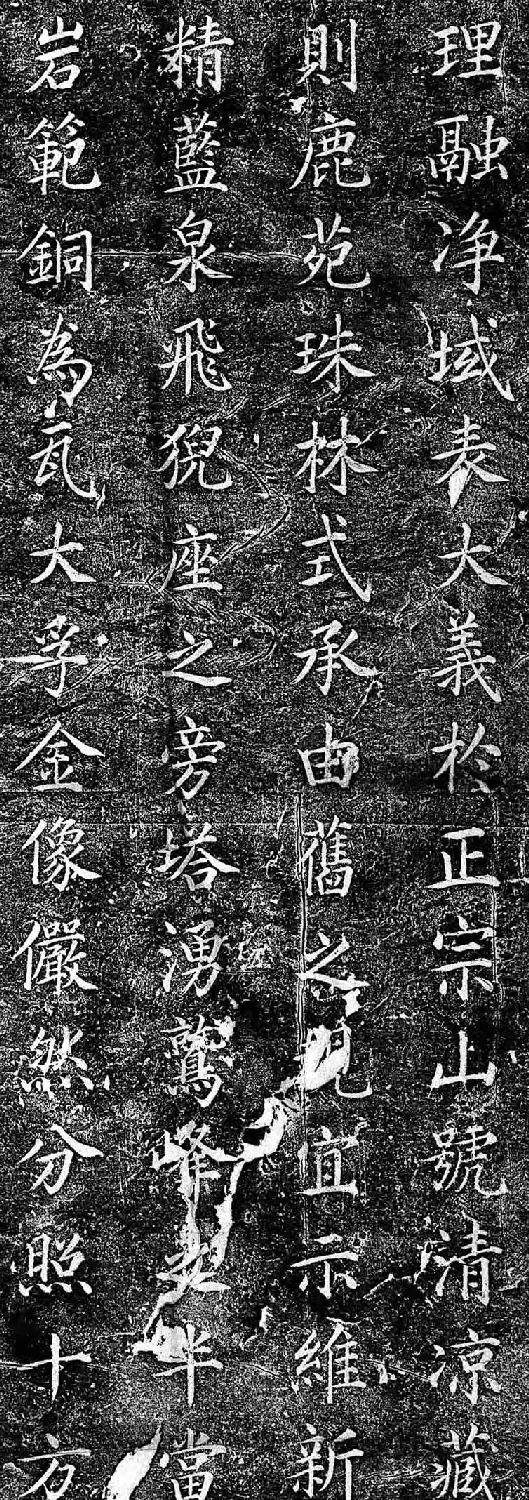 理融净域表大義於正宗山號清涼藏
則鹿苑珠林式承由舊之規宜示維新
精藍泉飛猊座之旁塔湧鷲峰之半當
岩範銅為瓦大孚金像儼然分照十方